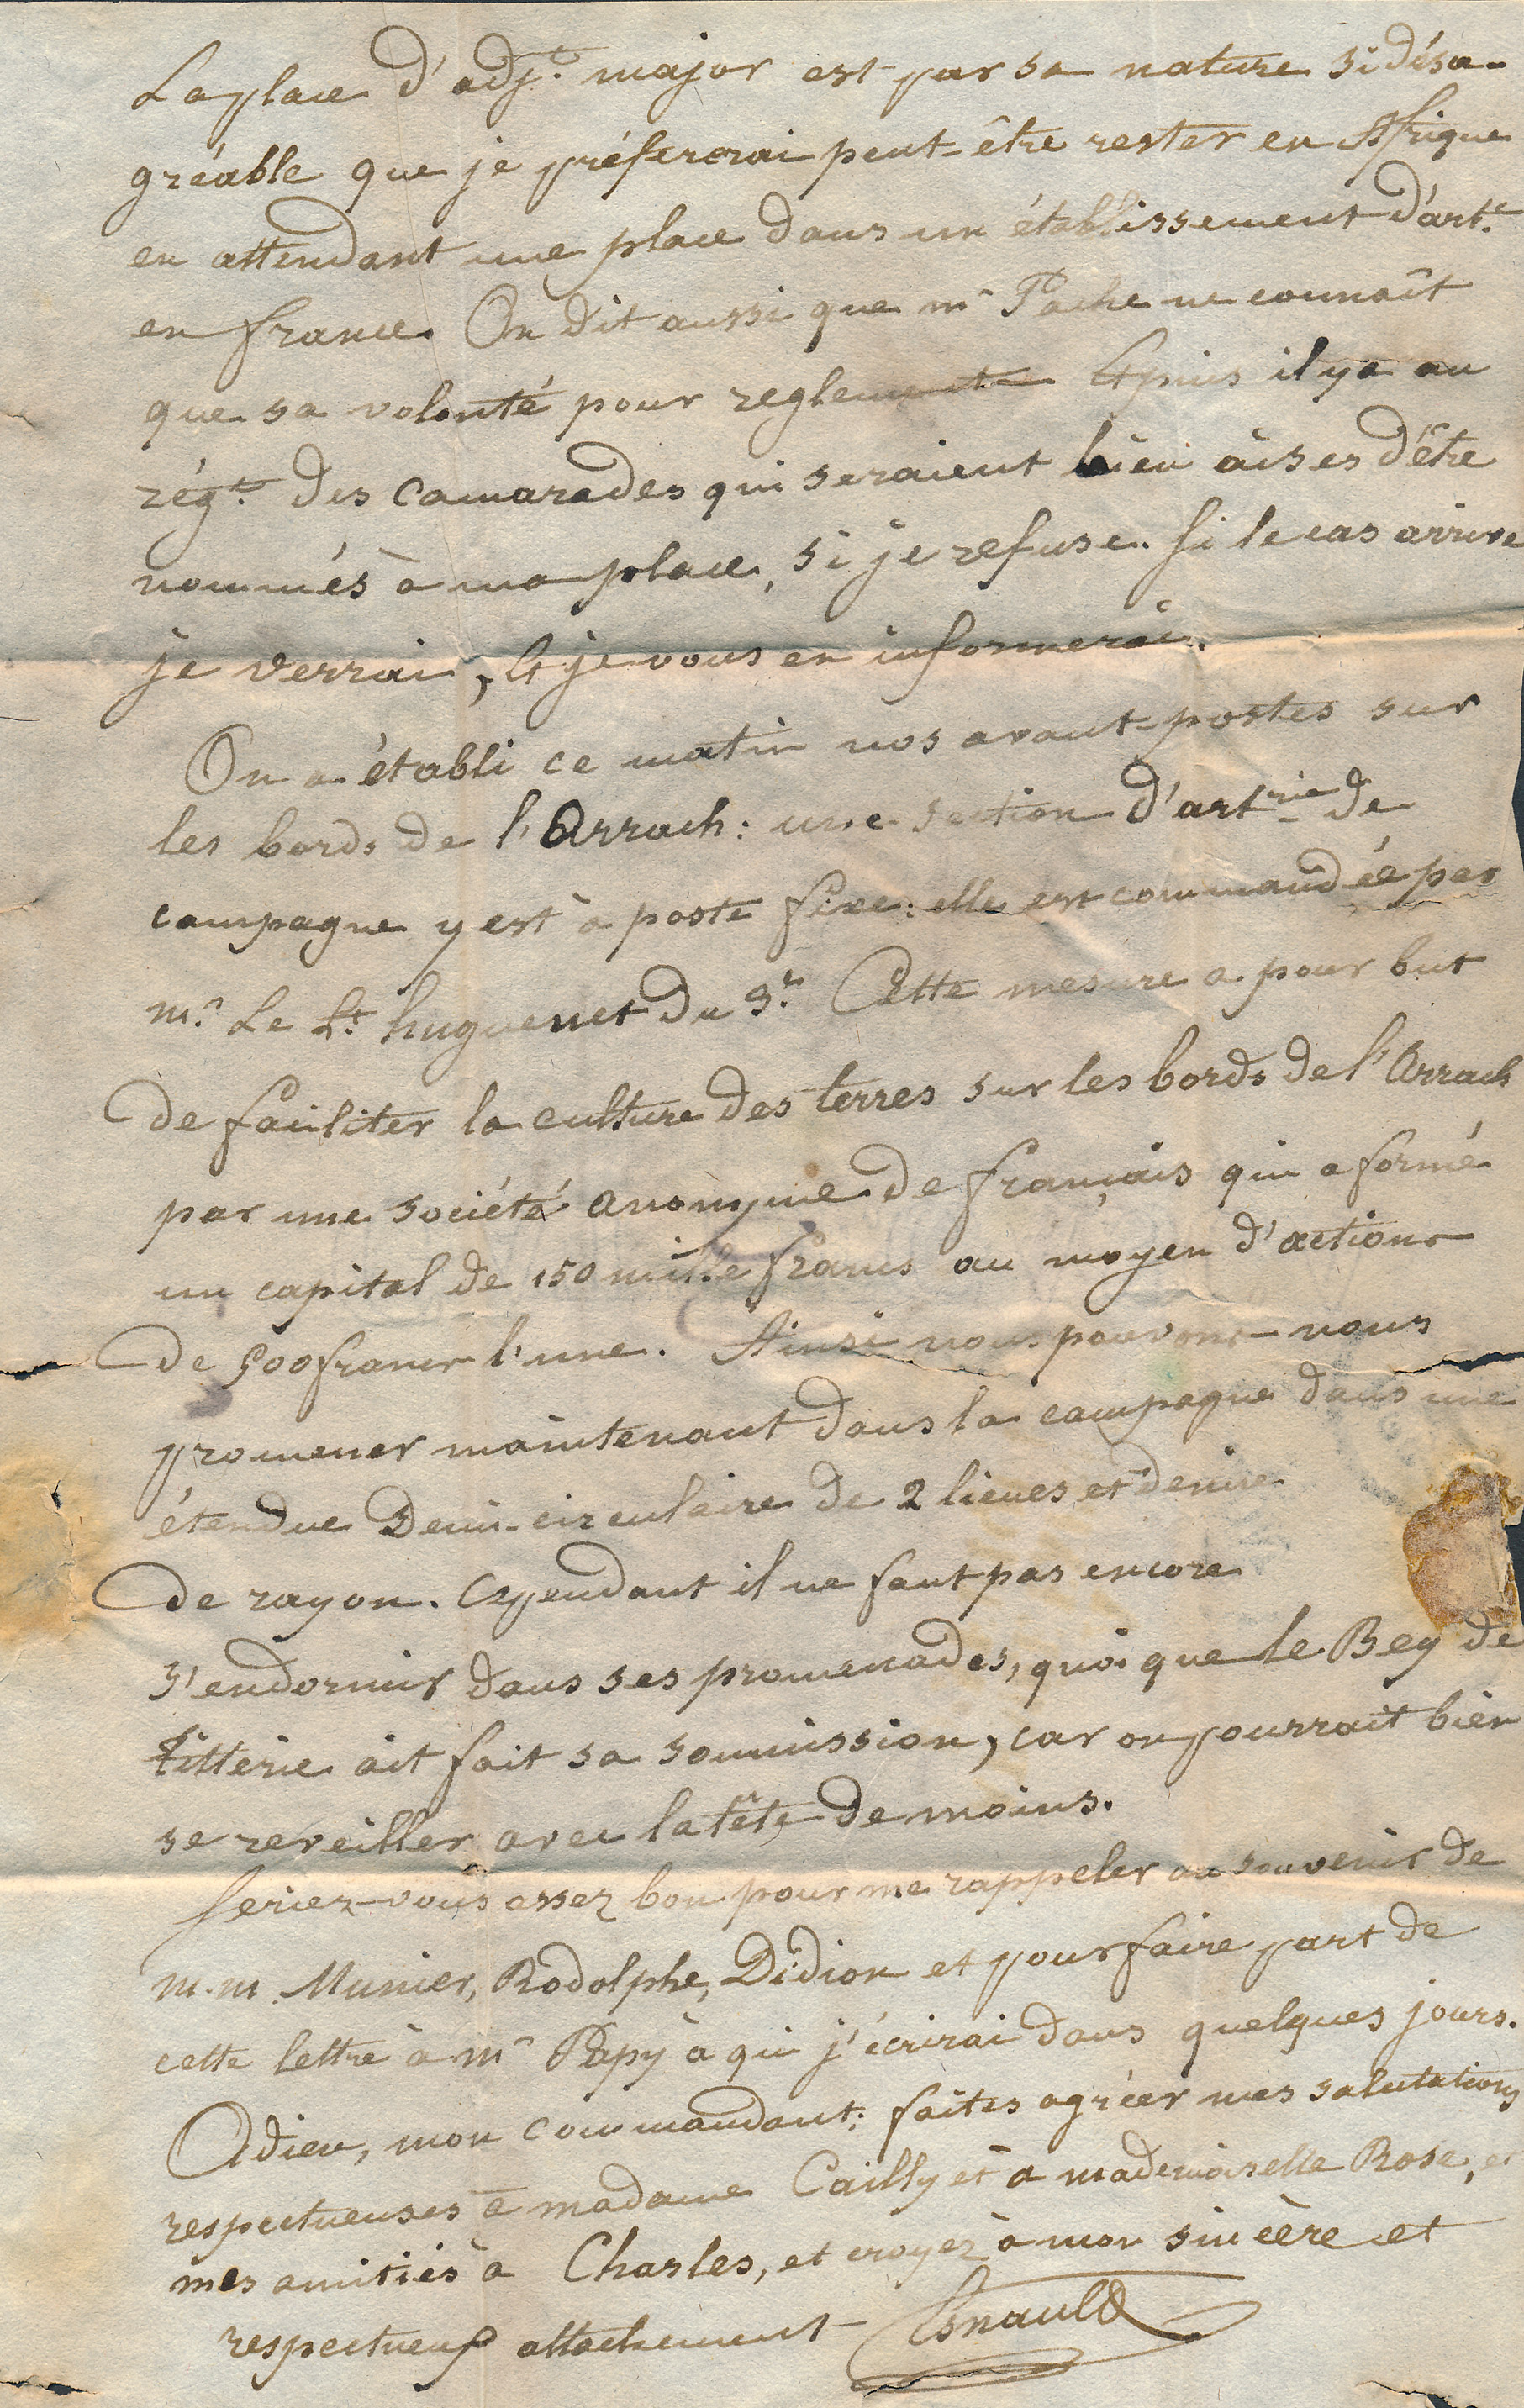 La place d'adj.t major est par sa nature si désa-
gréable que je préfererai peut-être rester en Afrique
en attendant une place dans un établissement d'art.e
en france. On dit aussi que mr Pache ne connaît
que sa volonté pour reglement. Et puis il y a au
rég.t des camarades qui seraient bien aises d'être
nommés à ma place, si je refuse. Si le cas arrive
je verrai, et je vous en informerai.
On a établi ce matin nos avant-postes sur
les bords de l'Arrach: une section d'art.rie de
campagne y est à poste fixe: elle est commandée par
m.r Le Lt. huguenet du 9.e Cette mesure a pour but
de faciliter la culture des terres sur les bords de l'Arrach
par une société anonyme de français qui a formé
un capital de 150 mille francs au moyen d'actions
de 500 francs l'une. Ainsi nous pouvons nous
promener maintenant dans la campagne dans une
étendue demi-circulaire de 2 lieues et demie
de rayon. Cependant il ne faut pas encore
s'endormir dans ses promenades, quoique le Bey de
tittérie ait fait sa soumission, car on pourrait bien
se reveiller avec la tête de moins.
Seriez-vous assez bon pour me rappeler au souvenir de
m.m. Munier, Rodolphe, Didion et pour faire part de
cette lettre à mr Papy à qui j'écrirai dans quelques jours.
Adieu, mon commandant; faites agréer mes salutations
respectueuses à madame Cailly et à mademoiselle Rose, et
mes amitiés à Charles, et croyez à mon sincère et
respectueux attachement Esnault